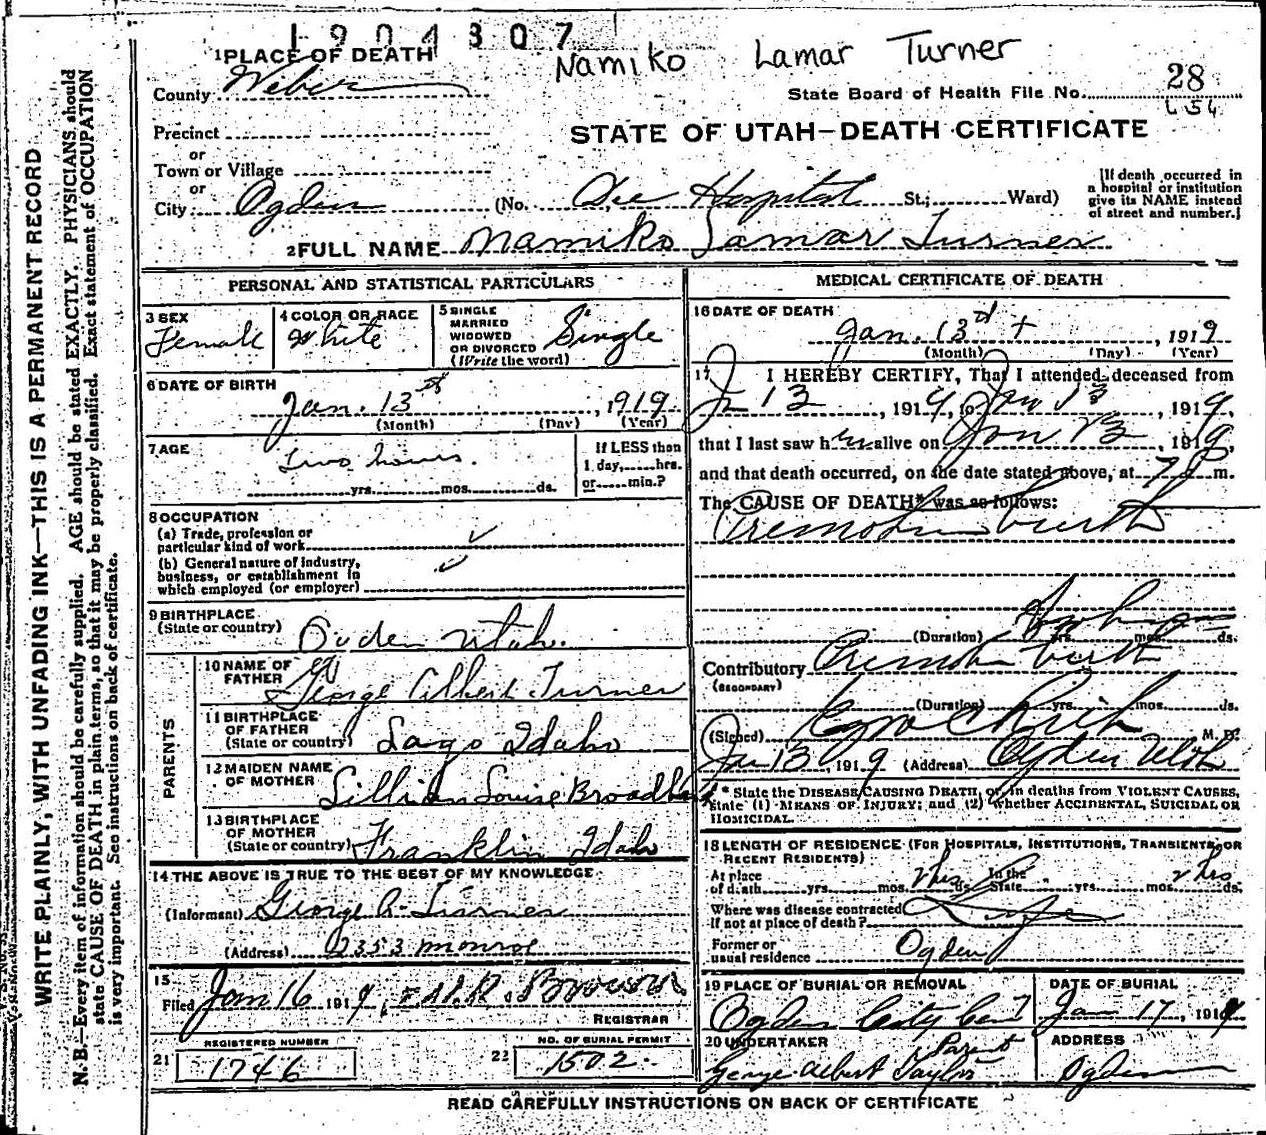 1904307
Namiko Lamar Turner
1 PLACE OF DEATH
County Weber
State Board of Health File No. 28
L 54
Precinct
STATE OF UTAH—DEATH CERTIFICATE
or
Town or Village
or
City Ogden (No. Dee Hospital St.; Ward)
[If death occurred in a hospital or institution give its NAME instead of street and number.]
2 FULL NAME Namiko Lamar Turner
PERSONAL AND STATISTICAL PARTICULARS
3 SEX
Female
4 COLOR OR RACE
White
5 SINGLE
MARRIED
WIDOWED
OR DIVORCED
(Write the word)
Single
6 DATE OF BIRTH
Jan. 13th, 1919
(Month) (Day) (Year)
7 AGE
two hours.
yrs. mos. ds.
If LESS than
1 day, hrs.
or min.?
8 OCCUPATION
(a) Trade, profession or
particular kind of work
(b) General nature of industry,
business, or establishment in
which employed (or employer)
9 BIRTHPLACE
(State or country) Ogden Utah.
PARENTS
10 NAME OF
FATHER George Albert Turner
11 BIRTHPLACE
OF FATHER
(State or country) Lago Idaho
12 MAIDEN NAME
OF MOTHER Lillian Louise
13 BIRTHPLACE
OF MOTHER
(State or country) Franklin Idaho
14 THE ABOVE IS TRUE TO THE BEST OF MY KNOWLEDGE
(Informant) George A. Turner
(Address) 2353 Monroe
15
Filed Jan 16, 1919, Brown
REGISTRAR
REGISTERED NUMBER
21 1746
NO. OF BURIAL PERMIT
22 1502
MEDICAL CERTIFICATE OF DEATH
16 DATE OF DEATH
Jan. 13, 1919
(Month) (Day) (Year)
17 I HEREBY CERTIFY, That I attended deceased from
13, 1919, to Jan 13, 1919,
that I last saw her alive on Jan 13, 1919,
and that death occurred, on the date stated above, at 7 P m.
The CAUSE OF DEATH* was as follows:
Premature birth
(Duration) yrs. mos. ds.
Contributory Premature birth
(SECONDARY)
(Duration) yrs. mos. ds.
(Signed) M. D.
Jan 13, 1919 (Address) Ogden Utah
* State the DISEASE CAUSING DEATH, or, in deaths from VIOLENT CAUSES,
state (1) MEANS OF INJURY; and (2) whether ACCIDENTAL, SUICIDAL OR
HOMICIDAL.
18 LENGTH OF RESIDENCE (FOR HOSPITALS, INSTITUTIONS, TRANSIENTS, OR
RECENT RESIDENTS)
At place
of death yrs. mos. 2 hrs ds. In the
State yrs. mos. 2 hrs ds.
Where was disease contracted
if not at place of death?
Former or
usual residence Ogden
19 PLACE OF BURIAL OR REMOVAL
Ogden City Cem
DATE OF BURIAL
Jan 17, 1919
20 UNDERTAKER
Parent
George Albert Taylor
ADDRESS
Ogden
READ CAREFULLY INSTRUCTIONS ON BACK OF CERTIFICATE
WRITE PLAINLY, WITH UNFADING INK—THIS IS A PERMANENT RECORD
N. B.—Every item of information should be carefully supplied. AGE should be stated EXACTLY. PHYSICIANS should
state CAUSE OF DEATH in plain terms, so that it may be properly classified. Exact statement of OCCUPATION
is very important. See instructions on back of certificate.